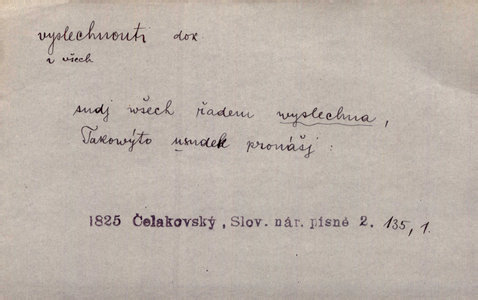 vyslechnouti dok.
v všech
sudj wšech řadem wyslechna,
Takowýto usudek pronášj:
1825 Čelakovský, Slov. nár. písně 2. 135, 1.